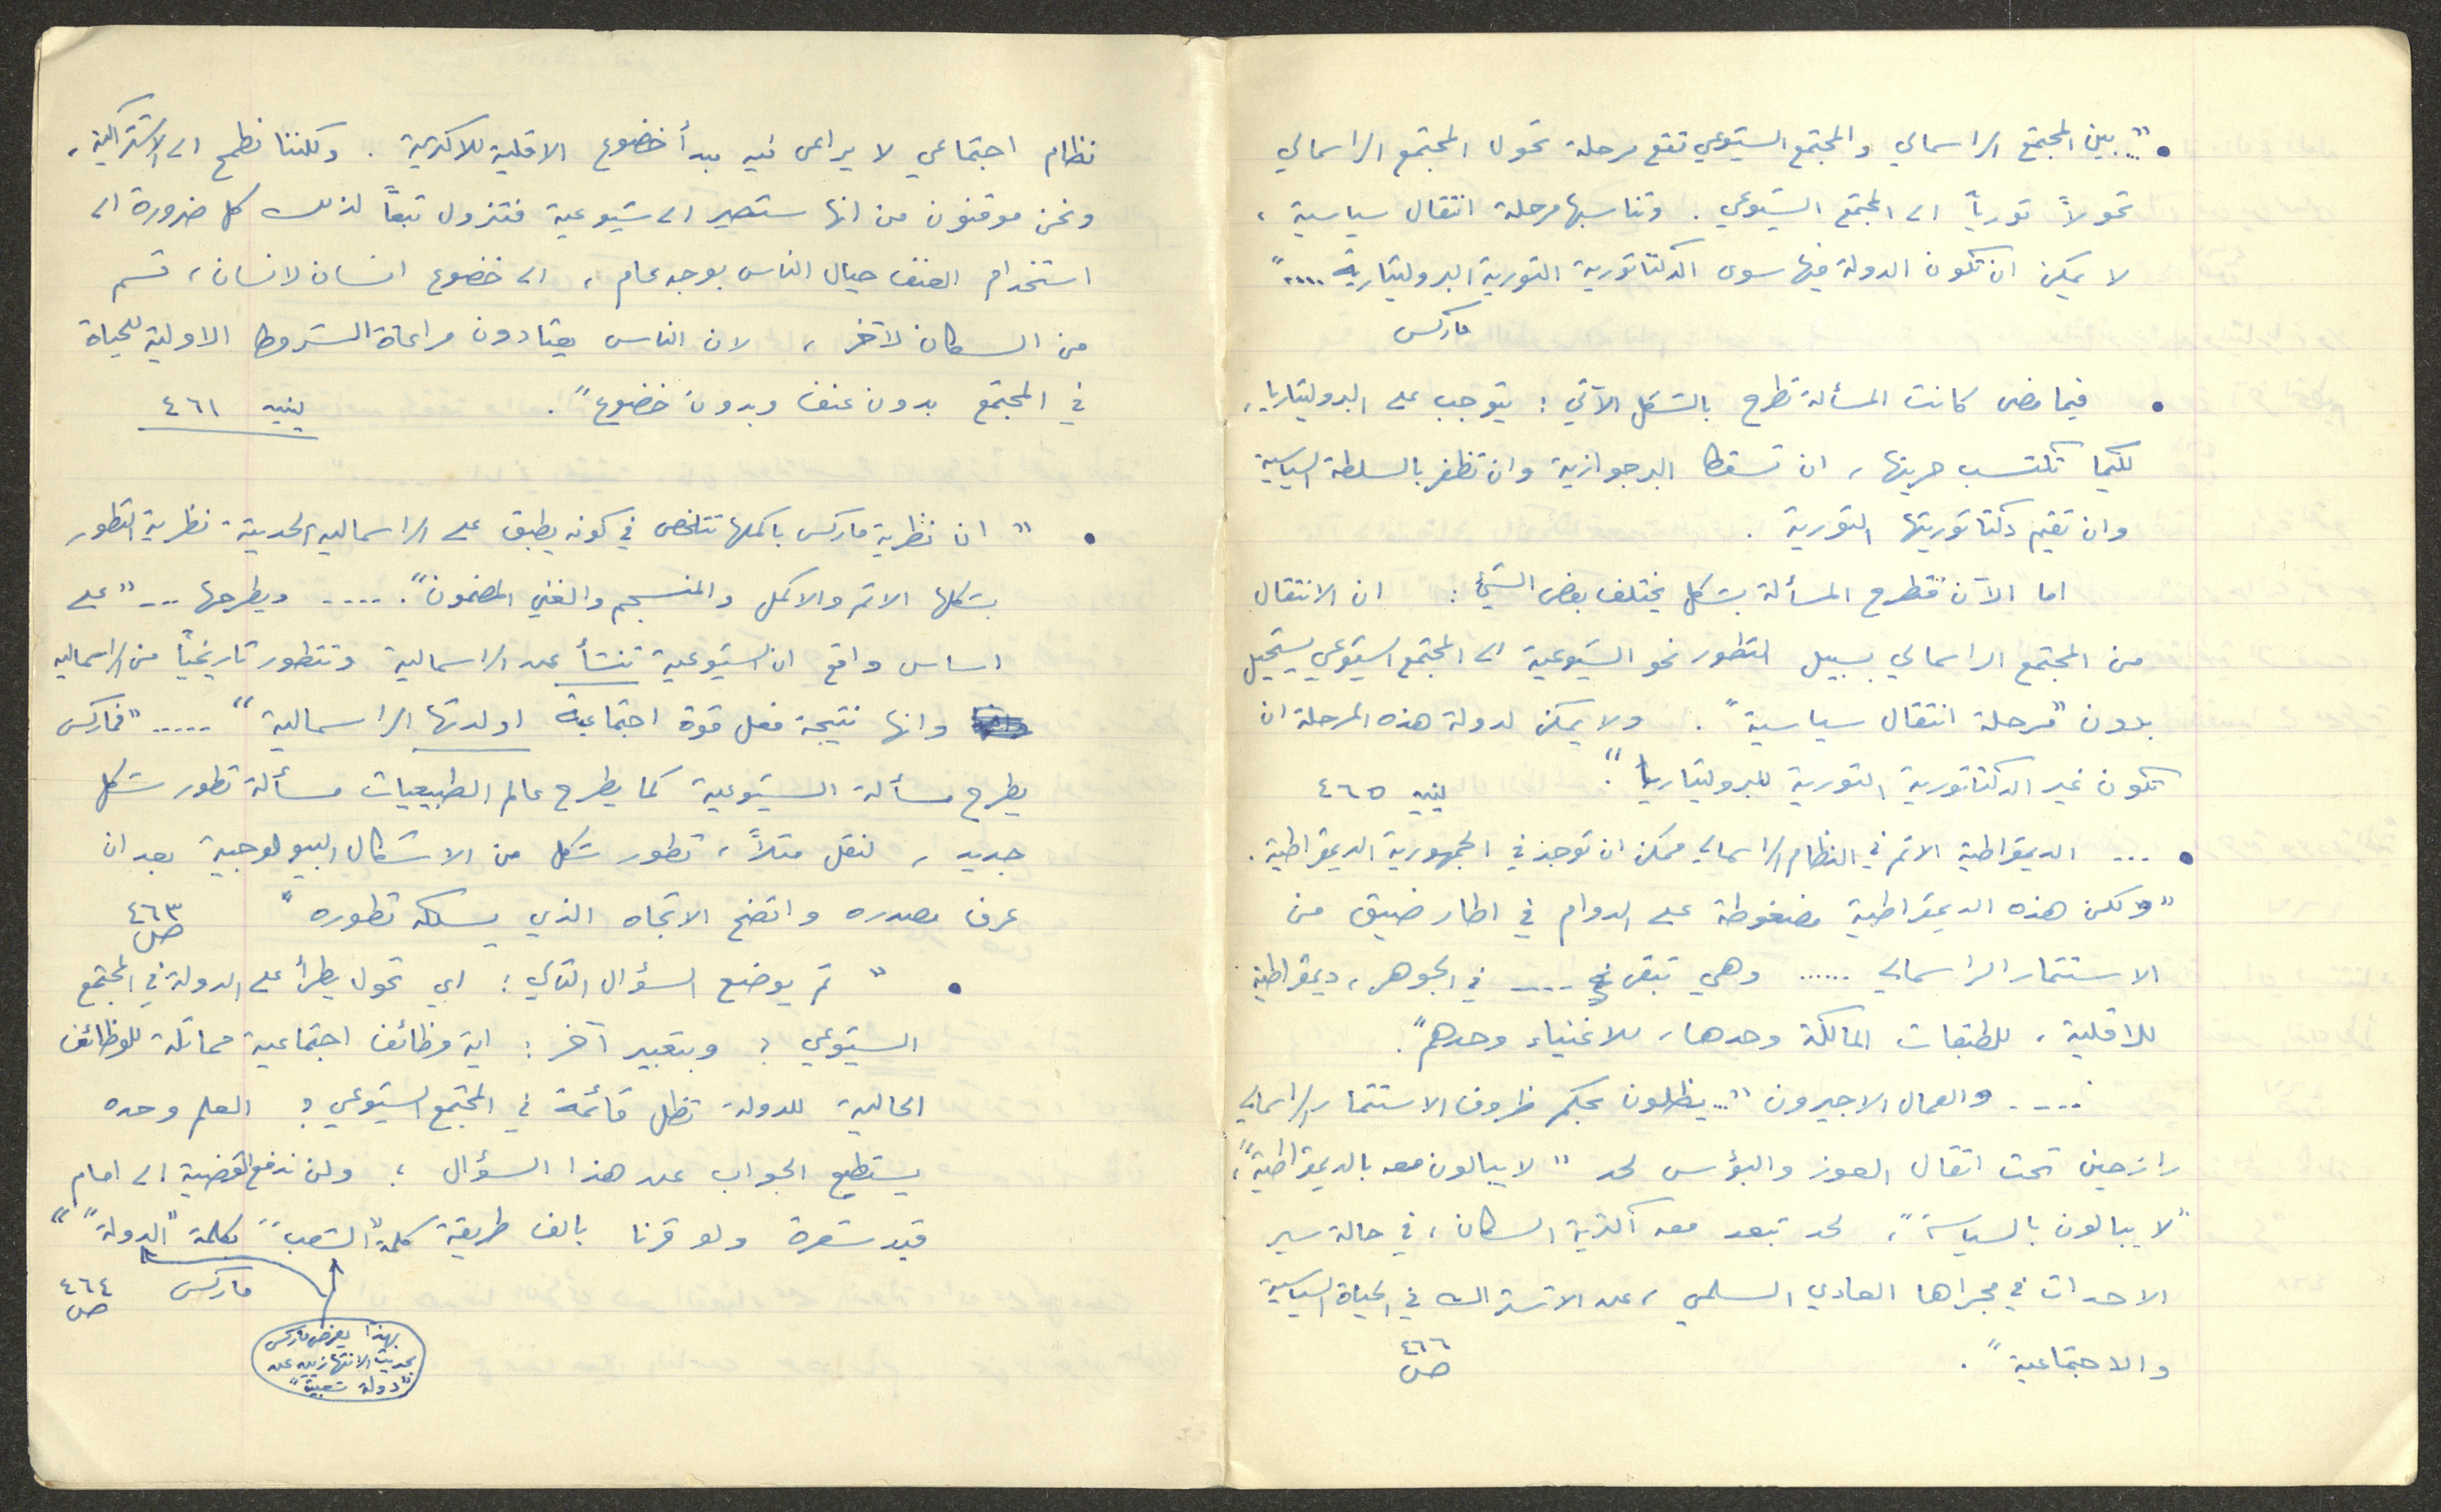 نظام اجتماعي لا يراعى فيه مبدأ خضوع الاقلية للاكثرية . ولكننا نطمح الى الاشتراكية ،
ونحن موقنون من انها ستصير الى شيوعية فتزول تبعاً لذلك كل ضرورة الى
استخدام العنف حيال الناس بوجه عام ، الى خضوع انسان لانسان ، قسم
من السكان لآخر ، لان الناس يعتادون مراعاة الشروط الاولية للحياة
في المجتمع بدون عنف وبدون خضوع" .  لينين ٤٦١
• " ان نظرية ماركس باكملها تتلخص في كونه يطبق على الراسماليه الحديثة نظرية التطور
بشكلها الاتم والاكمل والمنسجم والغني المضمون" . ..... ويطرحها ... "على
اساس واقع ان الشيوعية تنشأ عن الراسمالية وتتطور تاريخياً من الراسماليه
وانها نتيجة فعل قوة اجتماعية اولدتها الراسمالية " ..... "فماركس
يطرح مسألة الشيوعية كما يطرح عالم الطبيعيات مسألة تطور شكل
جديد ، لنقل مثلاً ، تطور شكل من الاشكال البيولوجية بعد ان
عرف مصدره واتضح الاتجاه الذي يسلكه تطوره "  ٤٦٣ ص
• " ثم يوضع السؤال التالي : اي تحول يطرأ على الدولة في المجتمع
الشيوعي ؟ وبتعبير آخر : اية وظائف اجتماعية مماثلة للوظائف
الحالية للدولة تظل قائمة في المجتمع الشيوعي ؟ العلم وحده
يستطيع الجواب على هذا السؤال ؛ ولن ندفع القضية الى امام
قيد شعرة ولو قرنا بالف طريقة كلمة "الشعب" بكلمة "الدولة" "
ماركس ٤٦٤ ص
بهذا يعرض ماركس
بحديث الانتهازيين عن
"دولة شعبية"
• "... بين المجتمع الراسمالي والمجتمع الشيوعي تقع مرحلة تحول المجتمع الراسمالي
تحولاً ثورياً الى المجتمع الشيوعي . وتناسبها مرحلة انتقال سياسية ،
لا يمكن ان تكون الدولة فيها سوى الدكتاتورية الثورية البروليتارية ....."
ماركس
• فيما مضى كانت المسألة تطرح بالشكل الآتي : يتوجب على البروليتاريا ،
لكيما تكتسب حريتها ، ان تسقط البرجوازية وان تظفر بالسلطة السياسية
وان تقيم دكتاتوريتها الثورية .
اما الآن فتطرح المسألة بشكل يختلف بعض الشيء : ان الانتقال
من المجتمع الراسمالي بسبيل التطور نحو الشيوعية الى المجتمع الشيوعي يستحيل
بدون "مرحلة انتقال سياسية" . ولا يمكن لدولة هذه المرحلة ان
تكون غير الدكتاتورية الثورية للبروليتاريا " .  لينين ٤٦٥
• ... الديمقراطية الاتم في النظام الراسمالي ممكن ان توجد في الجمهورية الديمقراطية .
"ولكن هذه الديمقراطية مضغوطة على الدوام في اطار ضيق من
الاستثمار الراسمالي ...... وهي تبقى .... في الجوهر ، ديمقراطية
للاقلية ، للطبقات المالكة وحدها ، للاغنياء وحدهم" .
..... والعمال الاجيرون "... يظلون بحكم ظروف الاستثمار الراسمالي
رازحين تحت اثقال العوز والبؤس لحد " لا يبالون معه بالديمقراطية" ،
"لا يبالون بالسياسة" ، لحد تبعد معه اكثرية السكان ، في حالة سير
الاحداث في مجراها العادي السلمي ، عن الاشتراك في الحياة السياسية
والاجتماعية " .  ٤٦٦ ص